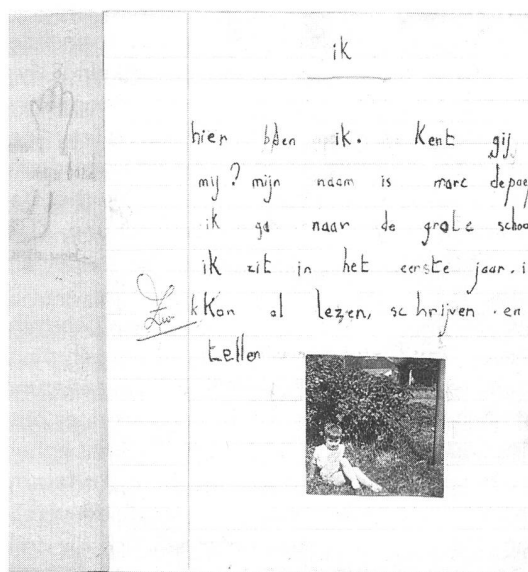 ik
hier bben ik. Kent gij
mij? mijn naam is marc depaep
ik ga naar de grote schoo
ik zit in het eerste jaar. i
k Kan al lezen, schrijven en
tellen